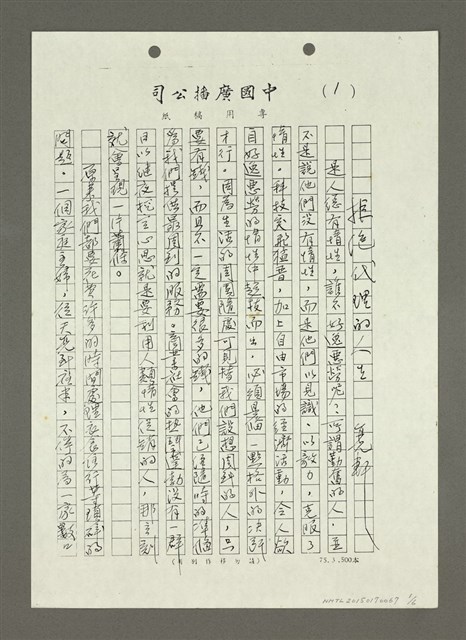 中國廣播公司
(1)
專用稿紙
拒絕代理的人生
亮軒
是人總有惰性,誰不好逸惡勞呢?所謂勤奮的人,並
不是說他們沒有惰性,而是他們以見識、以毅力,克服了
惰性。科技突飛猛晉,加上自由市場的經濟活動,令人欲
自好逸惡勞的惰性中超拔而出,必須具備一點格外的決斷
才行。因為生活的周圍隨處可見替我們設想周到的人,只
要有錢,而且不一定需要很多的錢,他們已經隨時的準備
為我們提供最周到的服務。商業社會的推動要沒有一群
日以繼夜挖空心思就是要利用人類惰性促銷的人,那立刻
就會呈現一片蕭條。
原來我們都要花費許多的時間處理衣食住行等瑣碎的
問題。一個家庭主婦,從天亮到夜來,不停的為一家數口
73.3.500本
NMTL20150190067
1/6